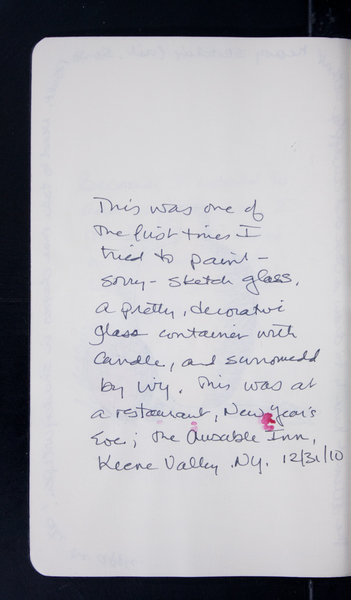 This was one of
the first times I
tried to paint -
sorry - sketch glass,
a pretty, decorative
glass container with
candle, and surrounded
by ivy. This was at
a restaurant, New Year's
Eve; the Ausable Inn,
Keene Valley .NY. 12/31/10